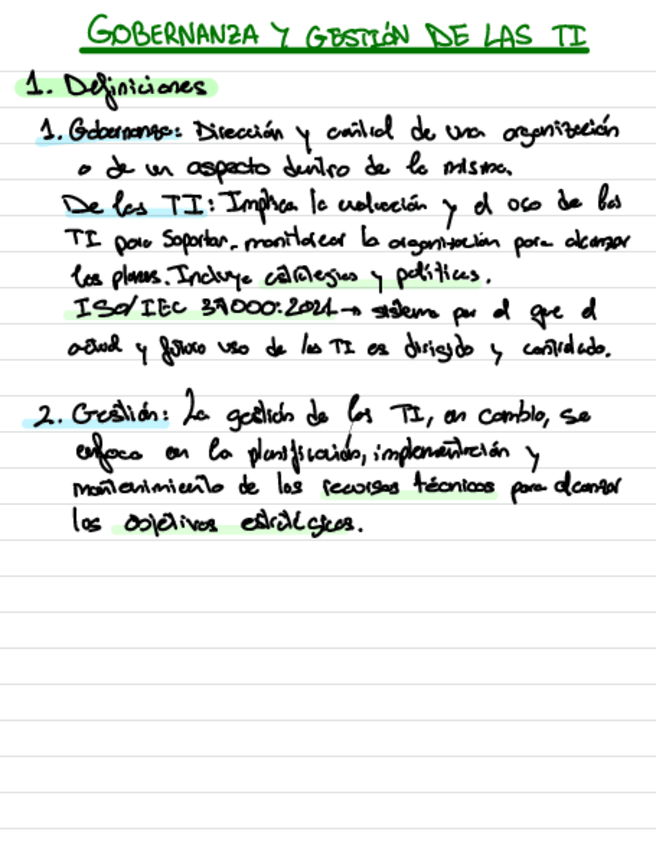 GOBERNANZA Y GESTIÓN DE LAS TI
1. Definiciones
1. Gobernanza: Dirección y control de una organización
o de un aspecto dentro de la misma.
De las TI: Implica la evaluación y el uso de las
TI para soportar, monitorear la organización para alcanzar
los planes. Incluye estrategias y políticas.
ISO/IEC :2021 → sistema por el que el
actual y futuro uso de las TI es dirigido y controlado.
2. Gestión: La gestión de las TI, en cambio, se
enfoca en la planificación, implementación y
mantenimiento de los recursos técnicos para alcanzar
los objetivos estratégicos.